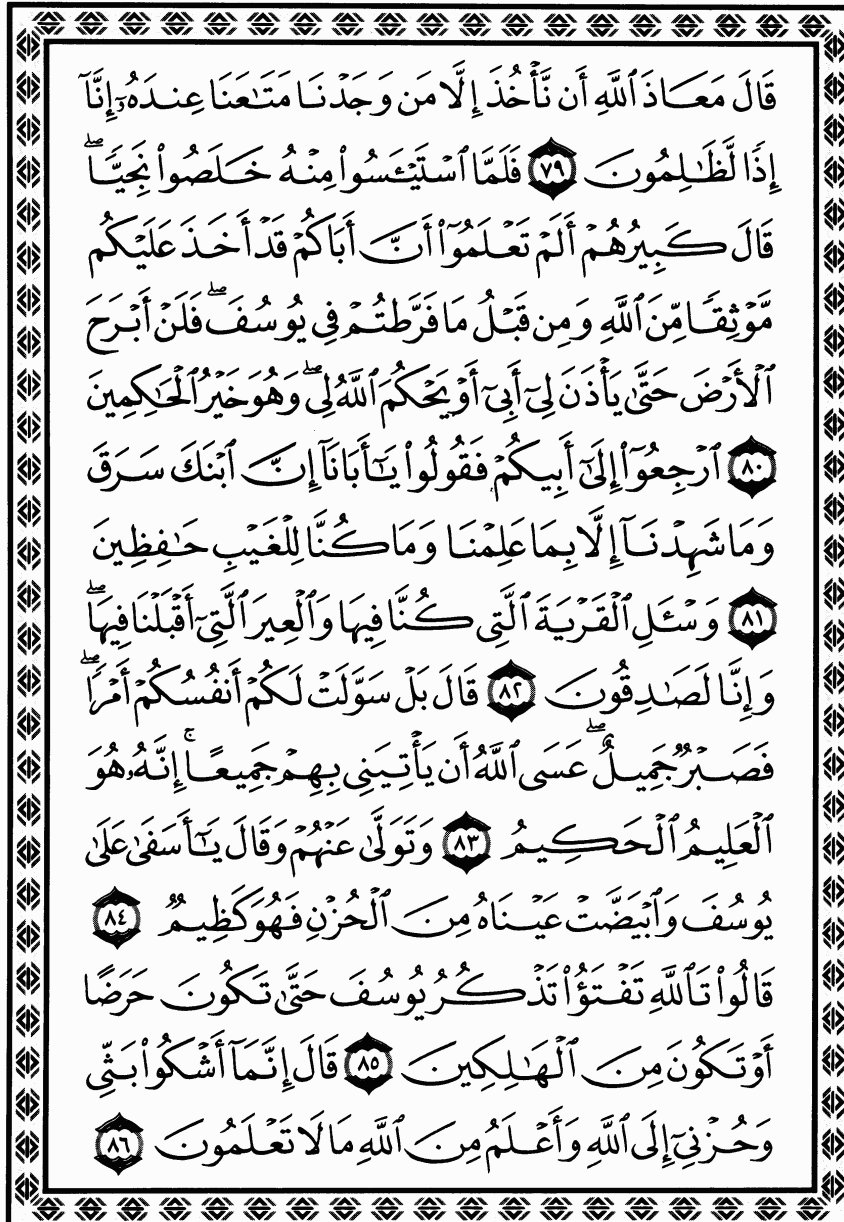 قَالَ مَعَاذَ ٱللَّهِ أَن نَّأْخُذَ إِلَّا مَن وَجَدْنَا مَتَٰعَنَا عِندَهُۥٓ إِنَّآ
إِذًا لَّظَٰلِمُونَ ٧٩ فَلَمَّا ٱسْتَيْـَٔسُوا۟ مِنْهُ خَلَصُوا۟ نَجِيًّاۖ
قَالَ كَبِيرُهُمْ أَلَمْ تَعْلَمُوٓا۟ أَنَّ أَبَاكُمْ قَدْ أَخَذَ عَلَيْكُم
مَّوْثِقًا مِّنَ ٱللَّهِ وَمِن قَبْلُ مَا فَرَّطتُمْ فِى يُوسُفَۖ فَلَنْ أَبْرَحَ
ٱلْأَرْضَ حَتَّىٰ يَأْذَنَ لِىٓ أَبِىٓ أَوْ يَحْكُمَ ٱللَّهُ لِىۖ وَهُوَ خَيْرُ ٱلْحَٰكِمِينَ
٨٠ ٱرْجِعُوٓا۟ إِلَىٰٓ أَبِيكُمْ فَقُولُوا۟ يَٰٓأَبَانَآ إِنَّ ٱبْنَكَ سَرَقَ
وَمَا شَهِدْنَآ إِلَّا بِمَا عَلِمْنَا وَمَا كُنَّا لِلْغَيْبِ حَٰفِظِينَ
٨١ وَسْـَٔلِ ٱلْقَرْيَةَ ٱلَّتِى كُنَّا فِيهَا وَٱلْعِيرَ ٱلَّتِىٓ أَقْبَلْنَا فِيهَاۖ
وَإِنَّا لَصَٰدِقُونَ ٨٢ قَالَ بَلْ سَوَّلَتْ لَكُمْ أَنفُسُكُمْ أَمْرًاۖ
فَصَبْرٌ جَمِيلٌۖ عَسَى ٱللَّهُ أَن يَأْتِيَنِى بِهِمْ جَمِيعًاۚ إِنَّهُۥ هُوَ
ٱلْعَلِيمُ ٱلْحَكِيمُ ٨٣ وَتَوَلَّىٰ عَنْهُمْ وَقَالَ يَٰٓأَسَفَىٰ عَلَىٰ
يُوسُفَ وَٱبْيَضَّتْ عَيْنَاهُ مِنَ ٱلْحُزْنِ فَهُوَ كَظِيمٌ ٨٤
قَالُوا۟ تَٱللَّهِ تَفْتَؤُا۟ تَذْكُرُ يُوسُفَ حَتَّىٰ تَكُونَ حَرَضًا
أَوْ تَكُونَ مِنَ ٱلْهَٰلِكِينَ ٨٥ قَالَ إِنَّمَآ أَشْكُوا۟ بَثِّى
وَحُزْنِىٓ إِلَى ٱللَّهِ وَأَعْلَمُ مِنَ ٱللَّهِ مَا لَا تَعْلَمُونَ ٨٦